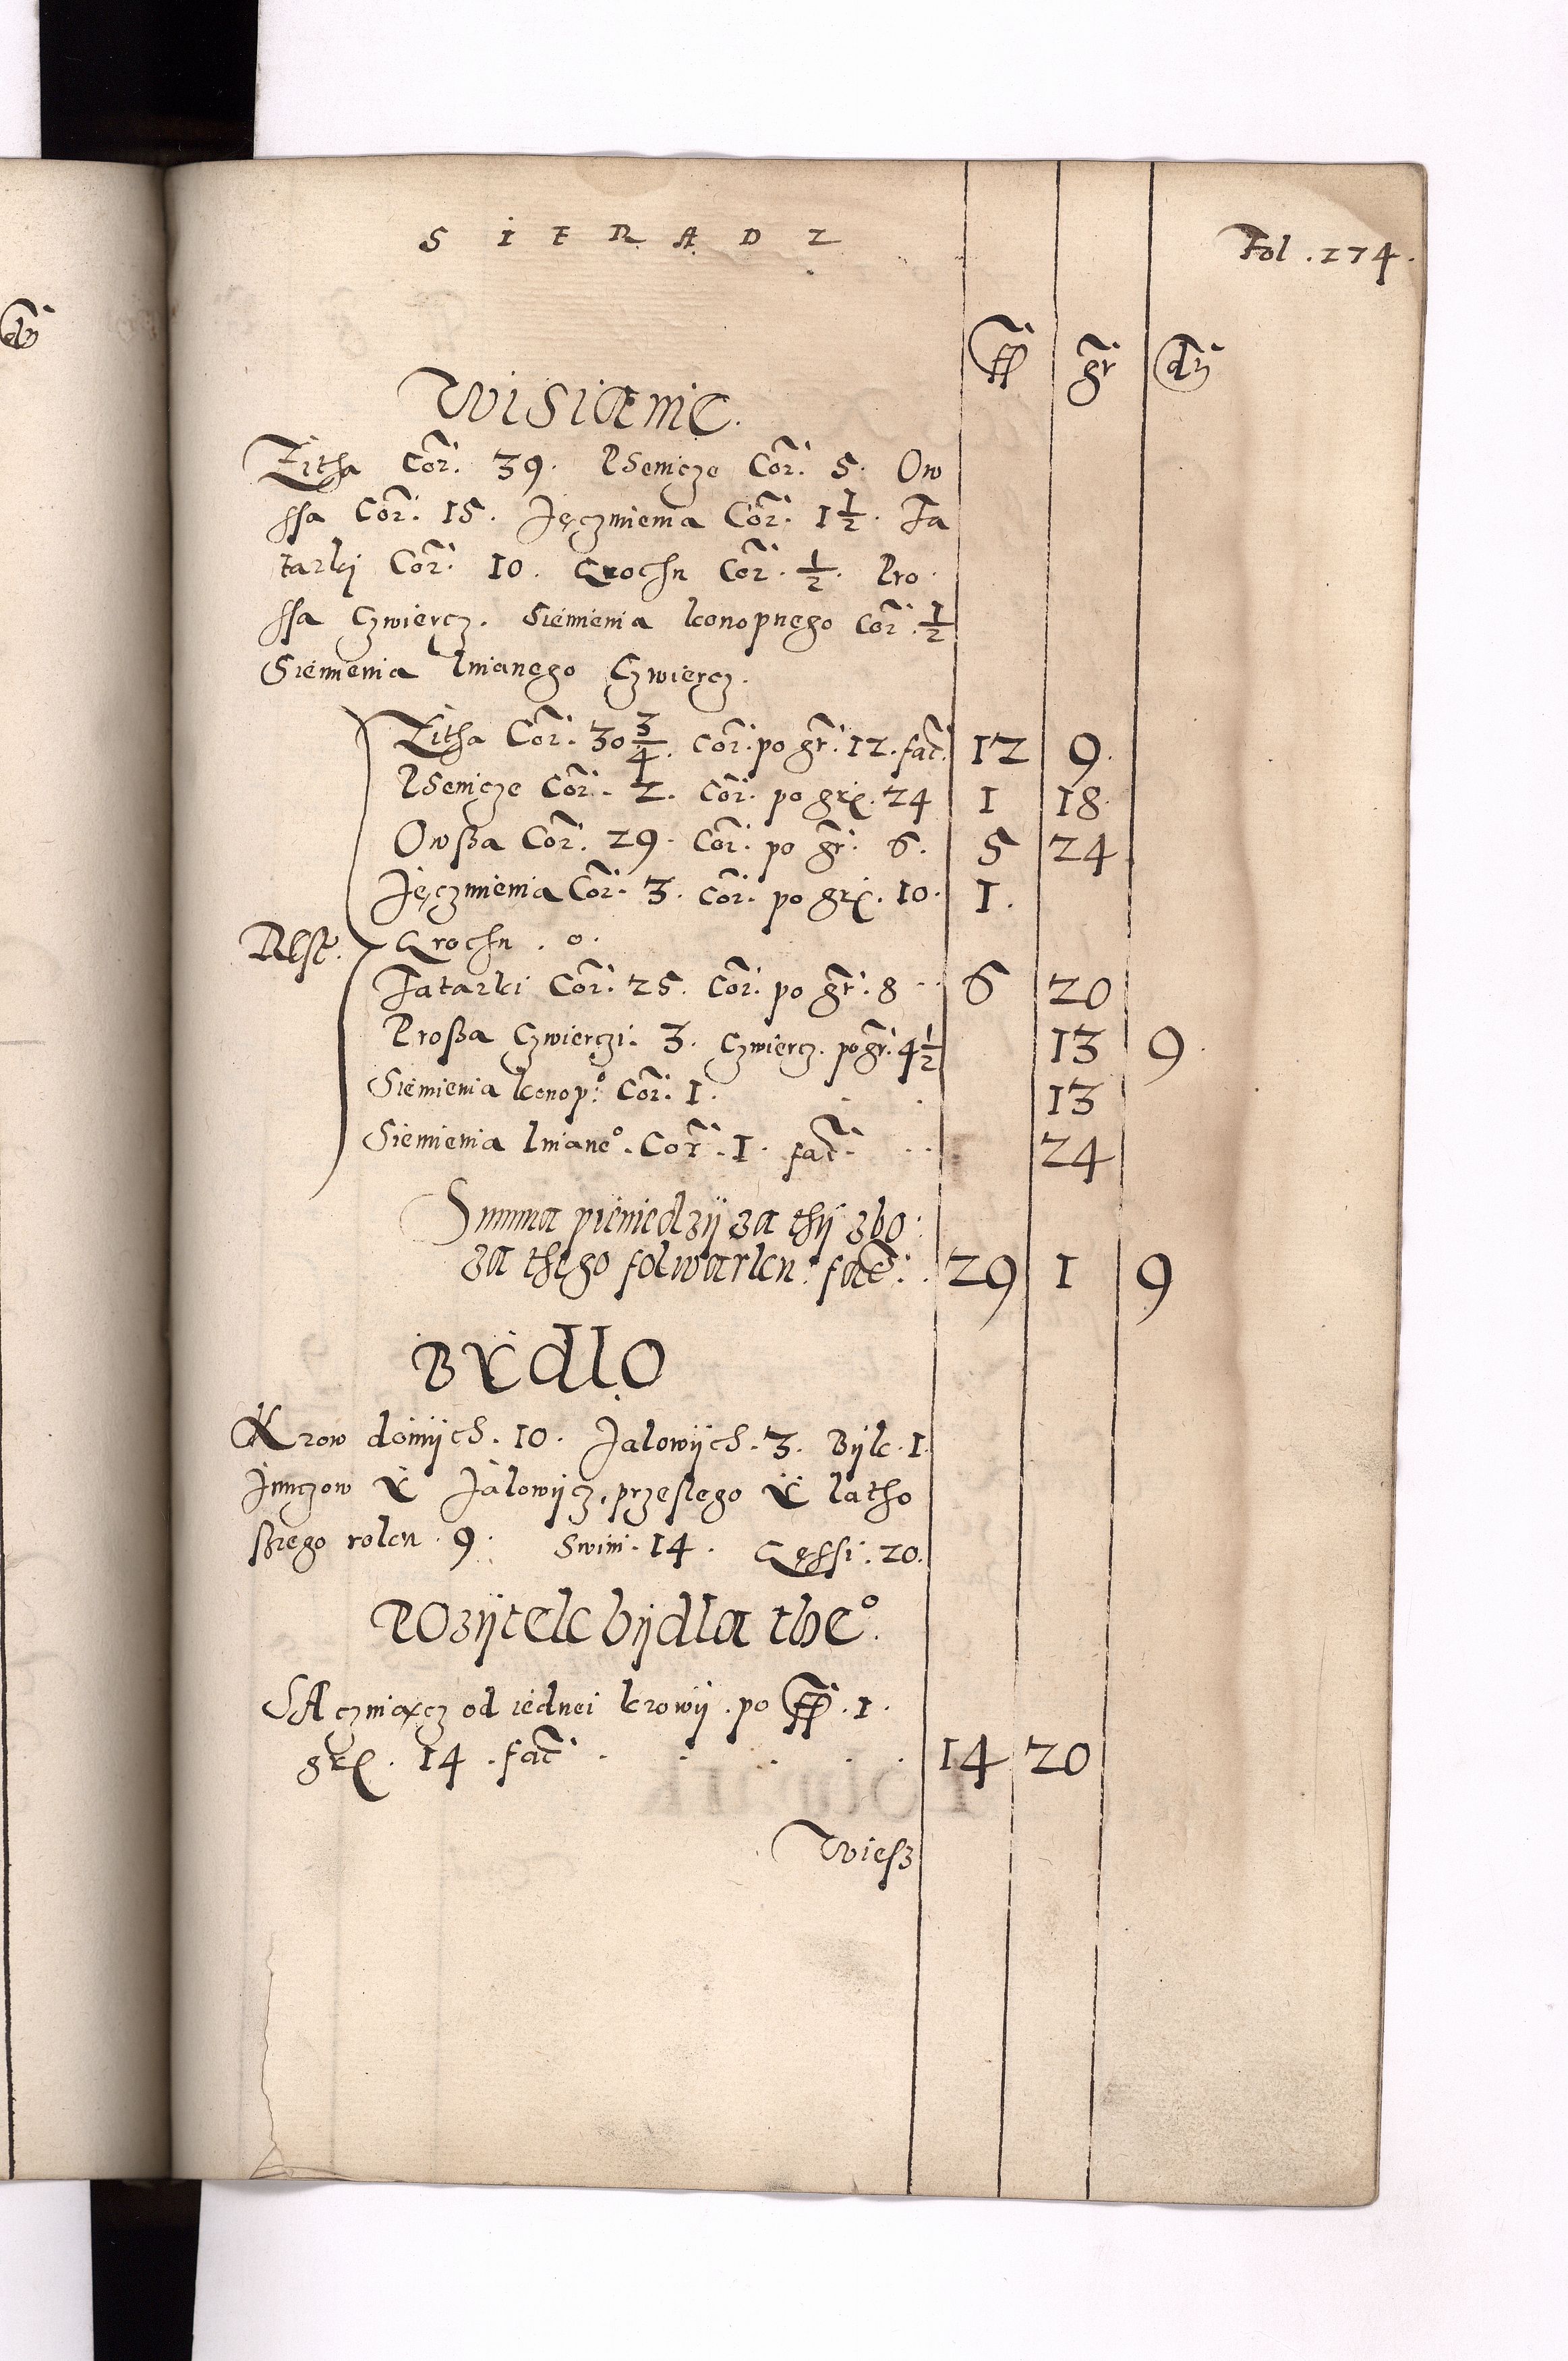 dn̄
S I E R A D Z
Fol. 274.
ff gr̄ dn̄
Wisianie.
Zitha Cor̄. 39. Psenicze Cor̄. 5. Ow
ssa Cor̄. 15. Jęczmienia Cor̄. 1 1/2. Ta
tarki Cor̄. 10. Grochu Cor̄. 1/2. Pro
ssa Czwiercz. Siemienia konopnego Cor̄. 1/2
Siemienia lnianego Czwiercz.
Zitha Cor̄. 30 3/4. Cor̄. po gr̄. 12. fac̄. 12 9.
Psenicze Cor̄. 2. Cor̄. po grx. 24 1 18.
Owßa Cor̄. 29. Cor̄. po gr̄. 6. 5 24
Jęczmienia Cor̄. 3. Cor̄. po grx. 10. 1.
Rest. Grochu . 0.
Tatarki Cor̄. 25. Cor̄. po gr̄. 8 . . 6 20
Proßa Czwierczi. 3. Czwiercz. po gr̄. 4 1/2 13 9.
Siemienia konop:º Cor̄. 1. . . 13
Siemienia lnianeº. Cor̄. 1. fac̄. . . 24
Summa pieniedzÿ za thÿ zbo
za thego folwarku. fac̄. . 29 1 9
BYdlo
Krow doinÿch. 10. Jalowÿch. 3. Bÿk. 1.
Junczow Y Jalowÿcz, przeslego Y latho
ßiego roku . 9. Swini. 14. Gęssi. 20.
POzÿtek bÿdla theº.
SAczniaxcz od iednei krowÿ . po ff . 1.
grx. 14 . fac̄ . . . . . 14 20
Wiesz